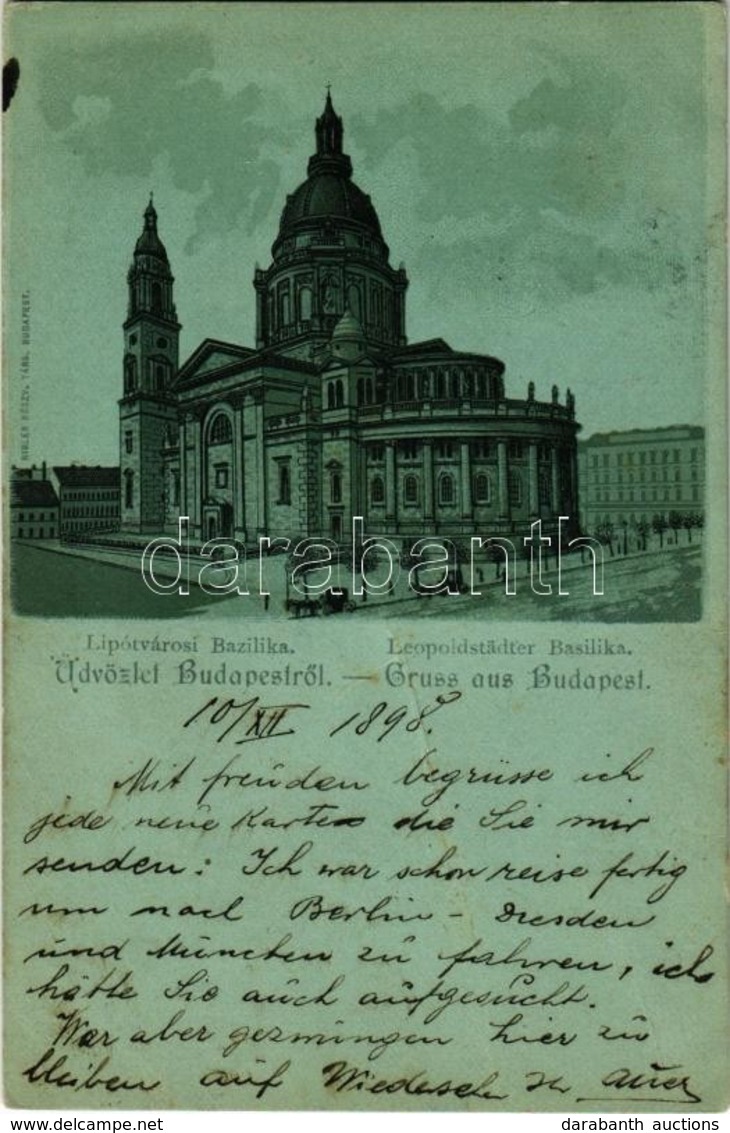 RIGLER RÉSZV. TÁRS. BUDAPEST.
darabanth
Lipótvárosi Bazilika. Leopoldstädter Basilika.
Üdvözlet Budapestről. — Gruss aus Budapest.
10/XII 1898.
Mit freuden begrüsse ich
jede neue Karte die Sie mir
senden: Ich war schon reise fertig
um nach Berlin - Dresden
und München zu fahren, ich
hätte Sie auch aufgesucht.
War aber gezwungen hier zu
bleiben auf Wiedersehn
darabanth auctions